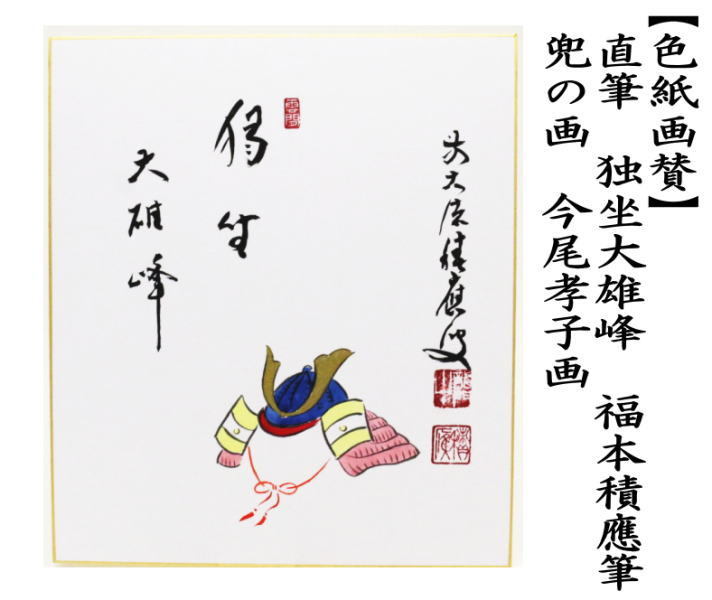 【色紙画賛】
直筆 独坐大雄峰 福本積應筆
兜の画 今尾孝子画
独坐
大雄峰